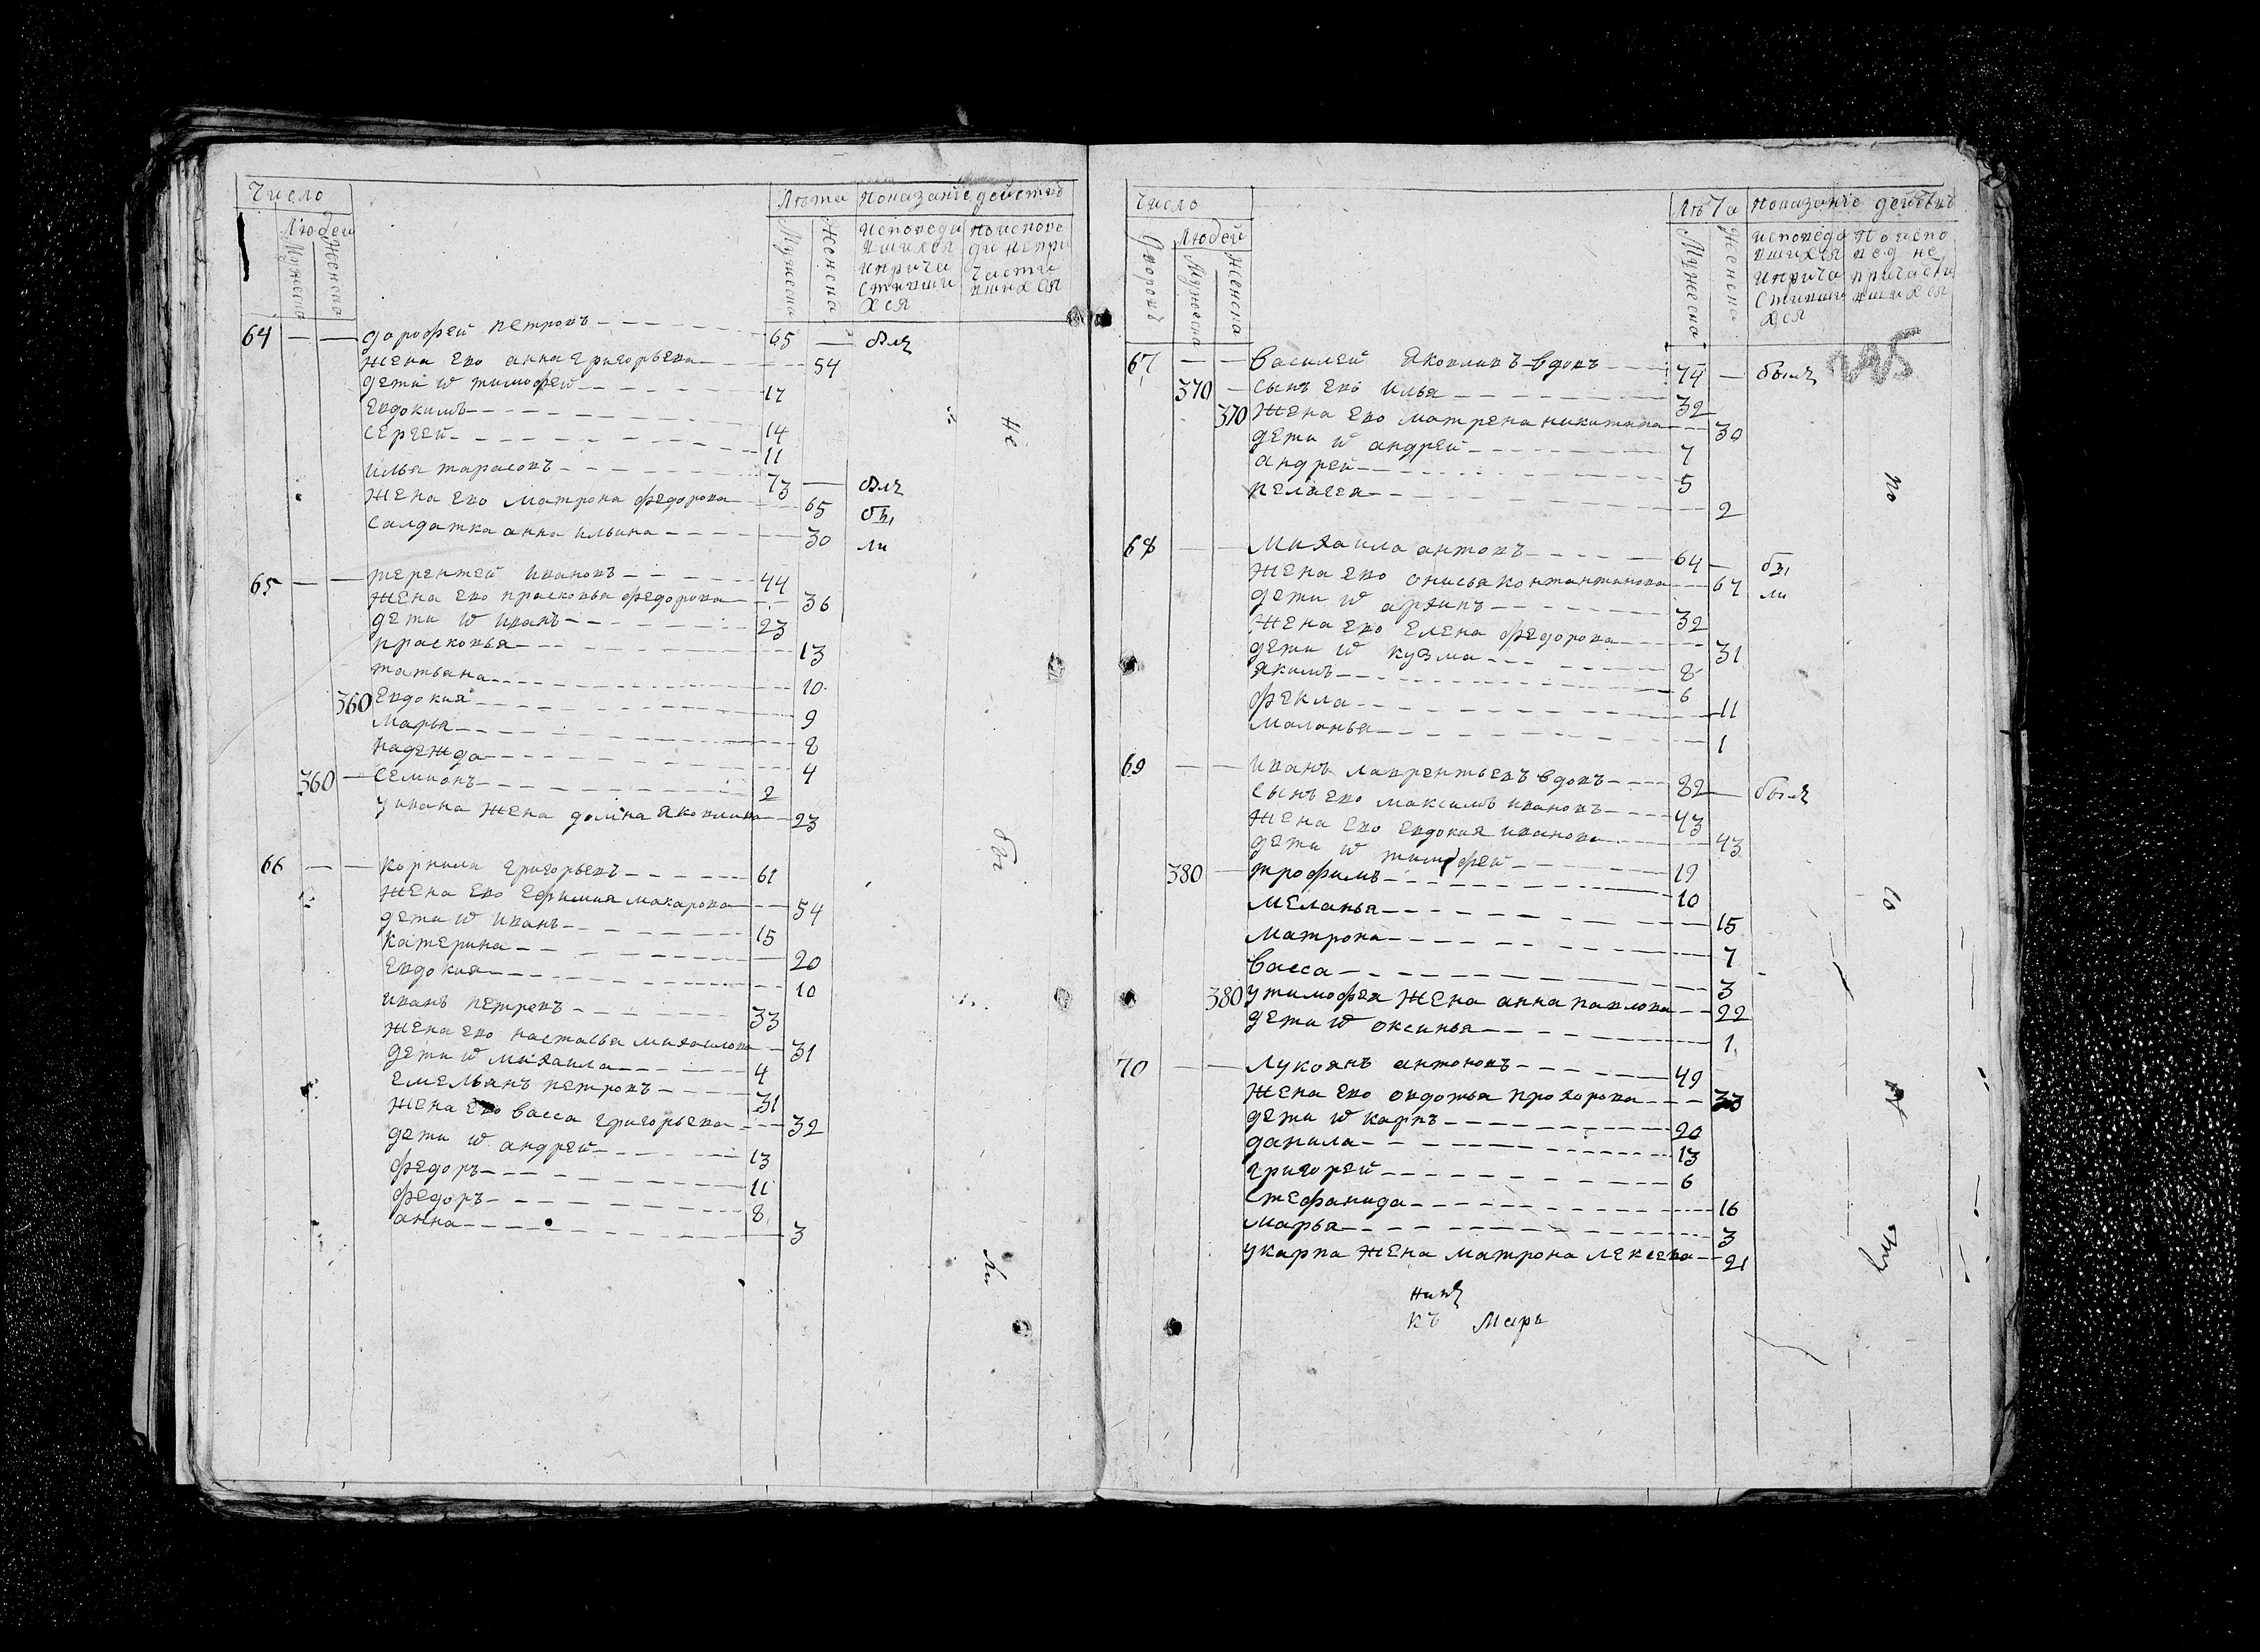 Число
Людей
Мужеска
Женска
Лѣта
Мужеска
Женска
Показанїе действъ
исповеди
вшихся
ипричи
стивши
хся
поиспове
ди непри
части
вшихся
64 — — дарофей петровъ 65 — былъ
жена ево анна григорьева 54
дети w тимофей 17
Евдокимъ 14
сергей 11
илья тарасовъ 73 — былъ
жена ево матрона федорова 65 бы
салдатка анна ильина 30 ли
не
65 — — терентей ивановъ 44
жена ево прасковья федорова 36
дети w иванъ 23
прасковья 13
татьана 10
360 Евдокия 9
марья 8
надежда 4
360 — семионъ 2
у ивана жена домна яковлива 23
бы
66 — — корнила григорьевъ 61
жена ево ефимия макарова 54
дети w иванъ 15
катерина 20
Евдокия 10
иванъ петровъ 33
жена ево настасья михаилова 31
дети w михаила 4
емельянъ петровъ 31
жена ево васса григорьева 32
дети w андрей 13
федоръ 11
федоръ 8
анна 3
ли
Число
Дворовъ
Людей
Мужеска
Женска
Лѣта
Мужеска
Женска
Показанїе действъ
исповеда
вшихся
иприча
стивши
хся
По испо
вед не
причасти
вшихся
67 — — василей Яковливъ вдовъ 74 — былъ
370 — сынъ ево илья 32
370 жена ево матрена никитина 30
дети w андрей 7
андрей 5
пелагея 2
68 — — михаила антовъ 64 — бы
жена ево онисья контантинова 67 ли
дети w архипъ 32
жена ево елена федорова 31
дети w кузма 8
якимъ 6
фекла 11
маланья 1
69 — — иванъ лаврентьевъ вдовъ 82 — былъ
сынъ ево максимъ ивановъ 43
жена ево евдокия иванова 43
дети w тимофей 19
380 — трофимъ 10
меланья 15
матрона 7
васса 3
380 утимофея жена анна павлова 22
дети w оксинья 1
70 — — лукоянъ антоновъ 49
жена ево овдотья прохорова 33
дети w карпъ 20
данила 13
григорей 6
стефанида 16
марья 3
укарпа жена матрона лексева 21
къ Марь